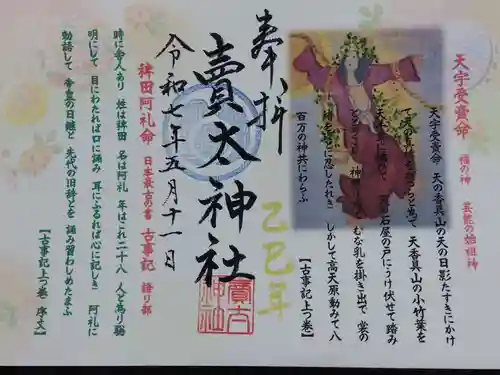 天宇受賣命 福の神 芸能の始祖神
天宇受賣命 天の香具山の天の日影をたすきにかけ
て 天の真拆を鬘と為て 天香具山の小竹葉を
天の石屋の戸にうけ伏せて踏み
神 むな乳を掛き出で 裳の
緒を ほとに忍したれき しかして高天原動みて八
百万の神共にわらふ
【古事記上つ巻】
奉拝
賣太神社
乙巳年
令和七年五月十一日
賣太神社
稗田阿礼命 日本最古の書 古事記 語り部
時に舎人あり 姓は稗田 名は阿礼 年はこれ二十八 人と為り聡
明にして 目にわたれば口に誦み 耳にふるれば心に記しき 阿礼に
勅語して 帝皇の日継と 先代の旧辞とを 誦み習わしめたまふ
【古事記上つ巻 序文】